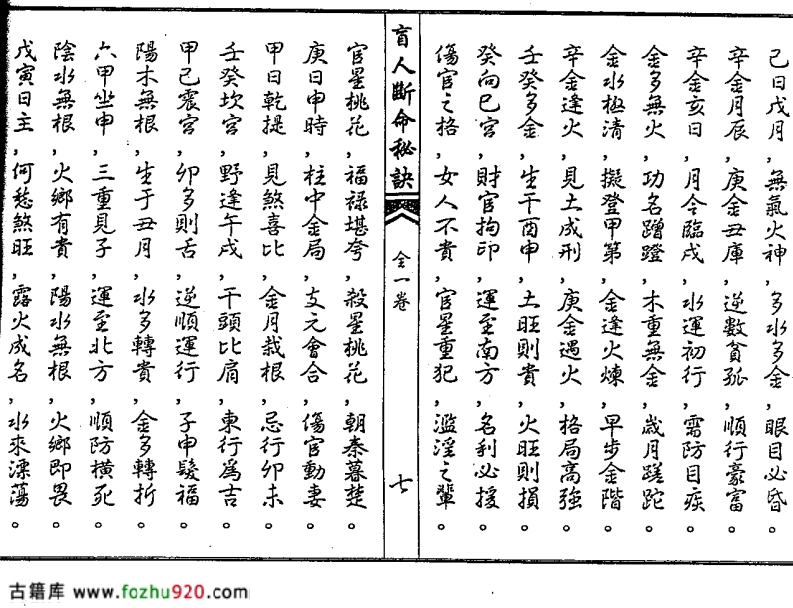 己日戊月，無氣火神，多水多金，眼目必昏。
辛金月辰，庚金丑庫，逆數貧孤，順行豪富。
辛金亥日，月令臨戌，水運初行，需防目疾。
金多無火，功名蹭蹬，木重無金，歲月蹉跎。
金水極清，擬登甲第，金逢火煉，早步金階。
辛金逢火，見土成刑，庚金遇火，格局高強。
壬癸多金，生于酉申，土旺則貴，火旺則損。
癸向巳宮，財官拘印，運至南方，名利必援。
傷官之格，女人不貴，官星重犯，濫淫之輩。
盲人斷命秘訣
全一卷
七
官星桃花，福禄堪夸，殺星桃花，朝秦暮楚。
庚日申時，柱中金局，支元會合，傷官動妻。
甲日乾提，見煞喜比，金月栽根，忌行卯未。
壬癸坎宮，野逢午戌，干頭比肩，東行爲吉。
甲己震宮，卯多則舌，逆順運行，子申發福。
陽木無根，生于丑月，水多轉貴，金多轉折。
六甲坐申，三重見子，運至北方，順防橫死。
陰水無根，火鄉有貴，陽水無根，火鄉即畏。
戊寅日主，何愁煞旺，露火成名，水來漂蕩。
古籍库 www.fozhu920.com